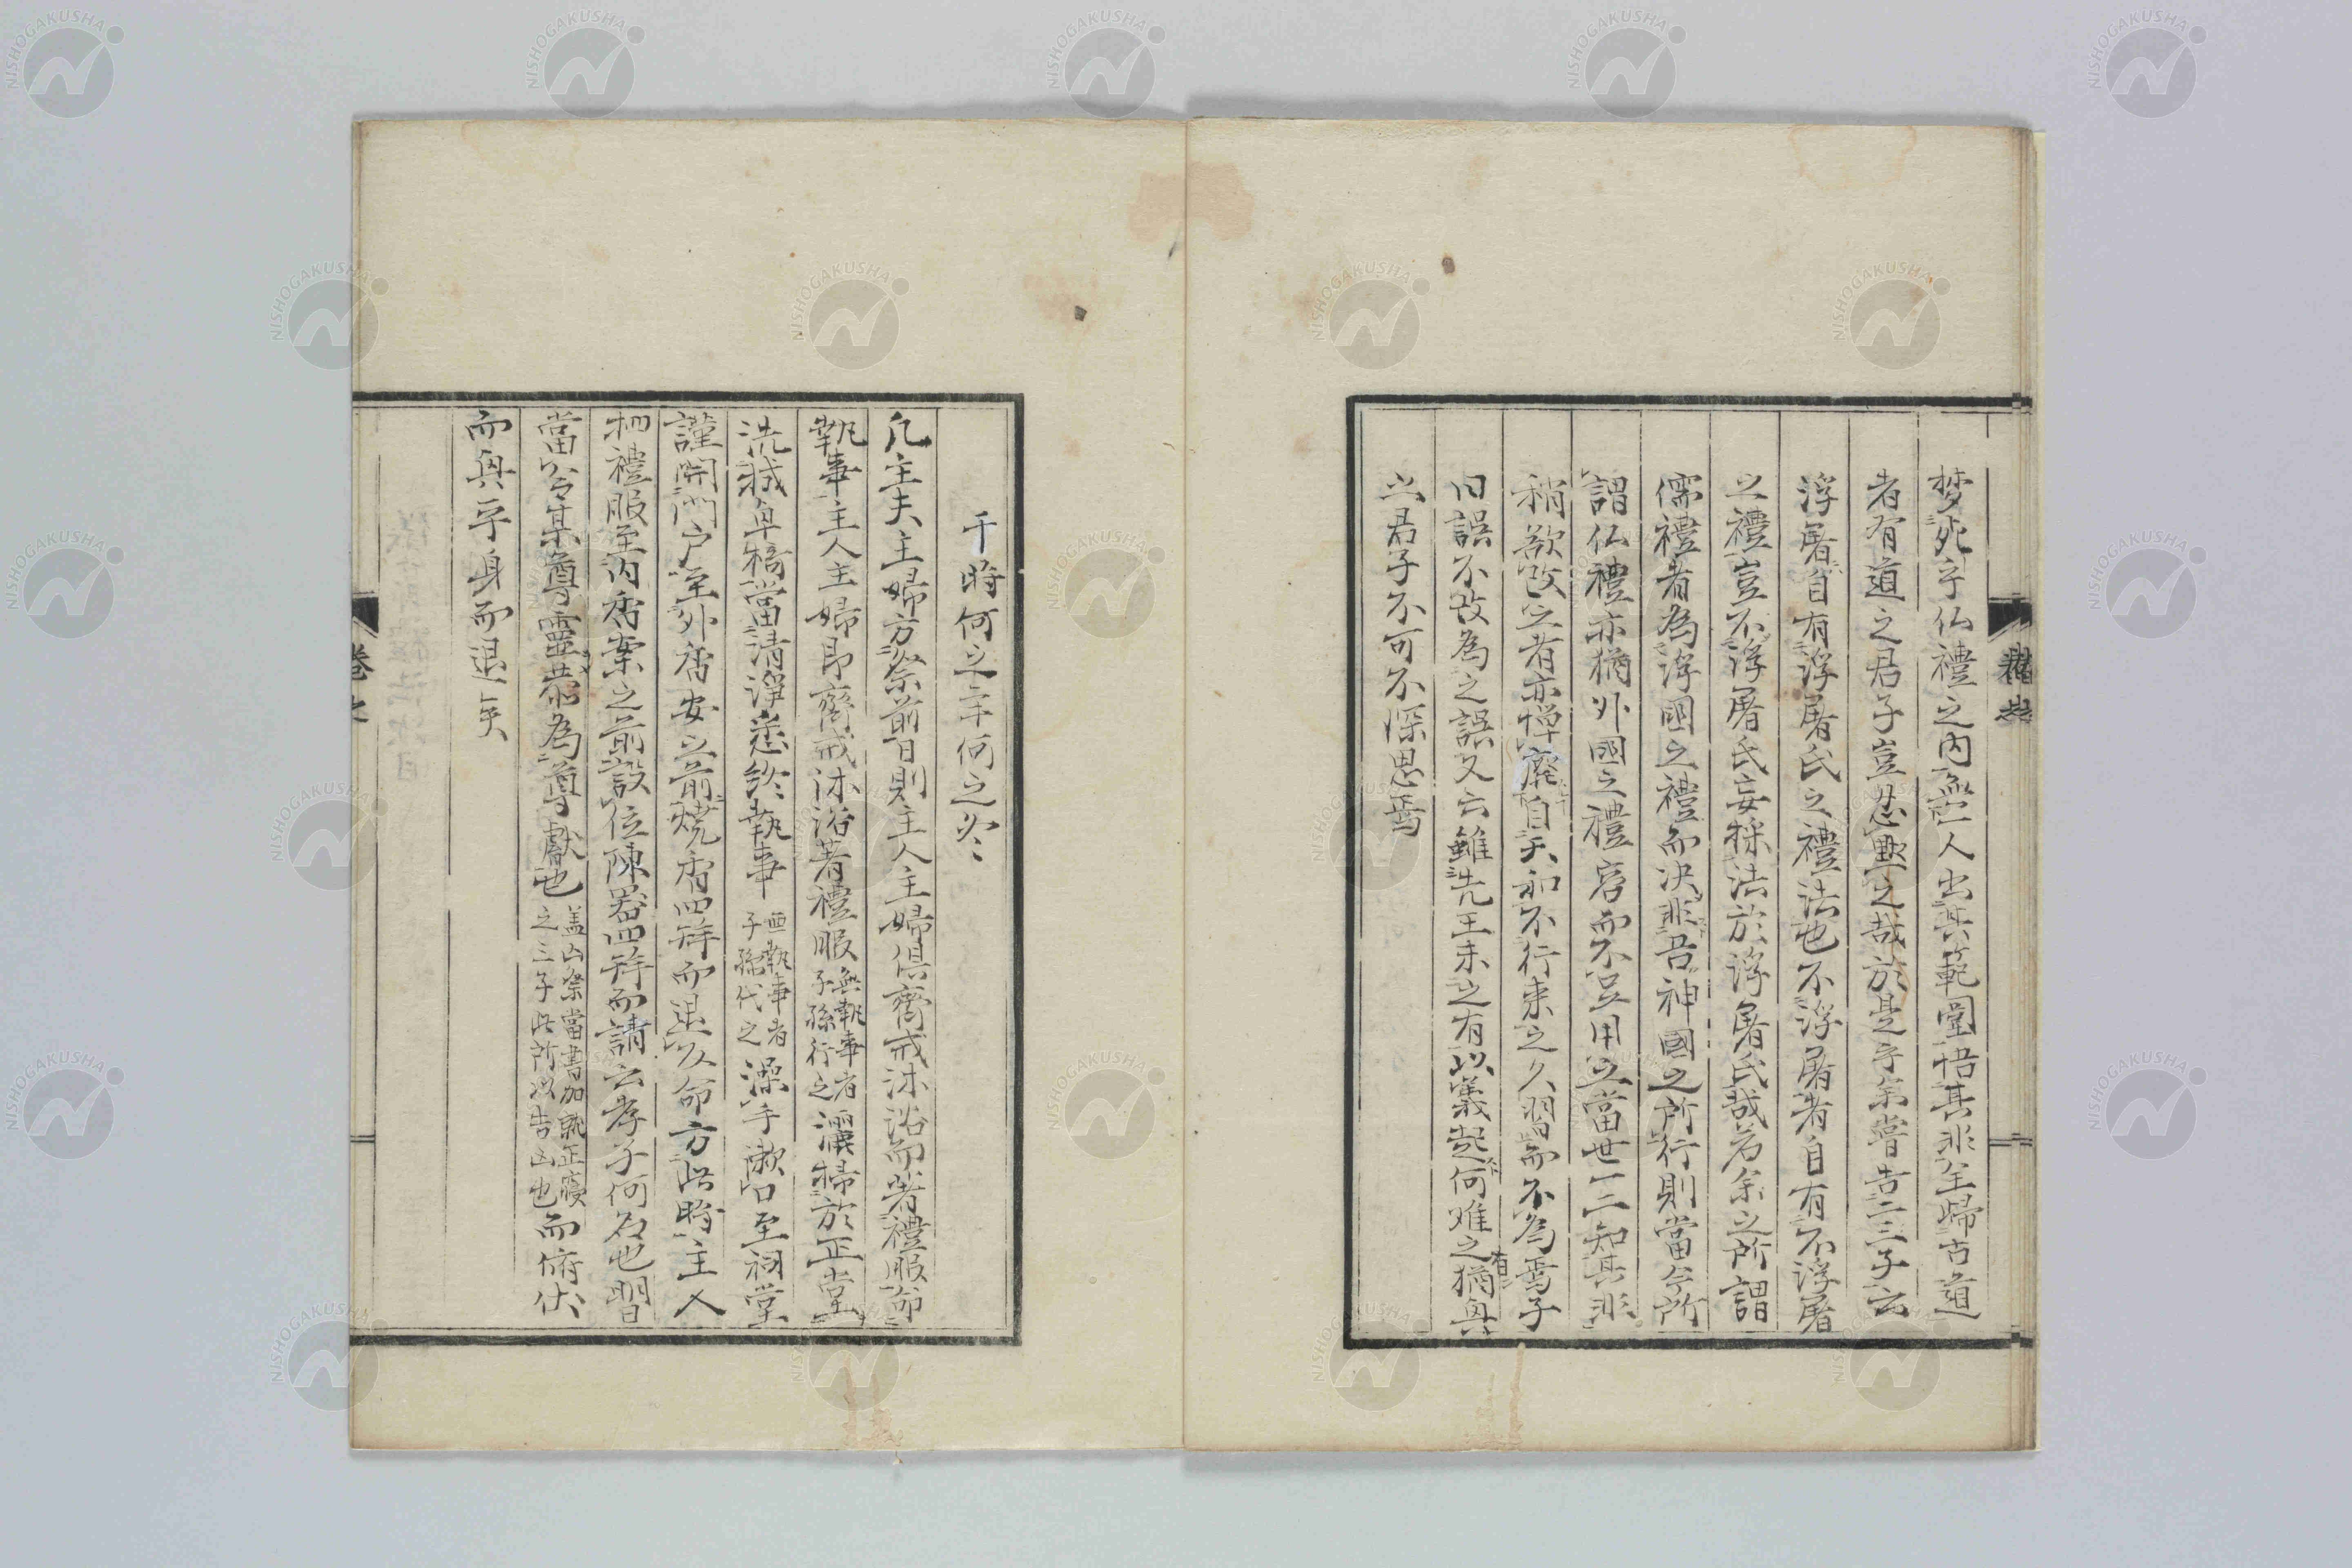 梦死乎仏禮之内無一人出其範圍悟其非全歸古道
者有道之君子豈忍黙之哉於是乎余嘗告二三子云
浮屠自有浮屠氏之禮法也不浮屠者自有不浮屠
之禮豈不浮屠氏妄採法於浮屠氏哉若余之所謂
儒禮者為浮國之禮而決非吾神國之所行則當今所
謂仏禮亦猶外國之禮宕而不豆用之當世一二知其非
稍欲改之者亦憚廢自天和不行來之久習而不為焉子
曰誤不改為之誤又云雖先王未之有以義起何难之猶與
之君子不可不深思焉
于時何之年何之冬
凡主夫主婦方祭前日則主人主婦俱齋戒沐浴而著禮服命
執事主人主婦即齋戒沐浴著禮服無執事者子孫行之灑掃於正堂
洗濈卓椅當清淨悉終執事無執事者子孫代之澡手漱口至祠堂
謹開門户至外香安之前燒香四拜而退以命方此時主人
禮服至内香案之前設位陳器四拜而請云孝子何名也
當公今某尊靈恭為尊獻也盖凶祭當書加就正寢之三子此所以告凶也而俯伏
而興平身而退矣